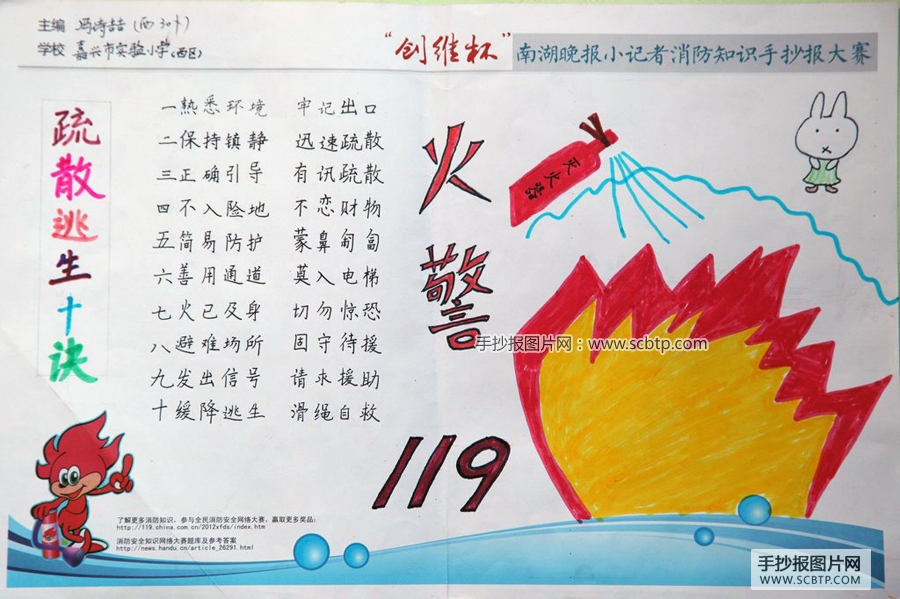 主编 冯诗喆(西304)
学校 嘉兴市实验小学(西区)
“创维杯”南湖晚报小记者消防知识手抄报大赛
疏散逃生十诀
一熟悉环境 牢记出口
二保持镇静 迅速疏散
三正确引导 有讯疏散
四不入险地 不恋财物
五简易防护 蒙鼻匍匐
六善用通道 莫入电梯
七火已及身 切勿惊恐
八避难场所 固守待援
九发出信号 请求援助
十缓降逃生 滑绳自救
火警
119
灭火器
手抄报图片网:www.scbtp.com
了解更多消防知识,参与全民消防安全网络大赛,赢取更多奖品:
http://119.china.com.cn/2012xfds/index.htm
消防安全知识网络大赛题库及参考答案
http://news.handu.cn/article_26291.html
手抄报图片网
WWW.SCBTP.COM